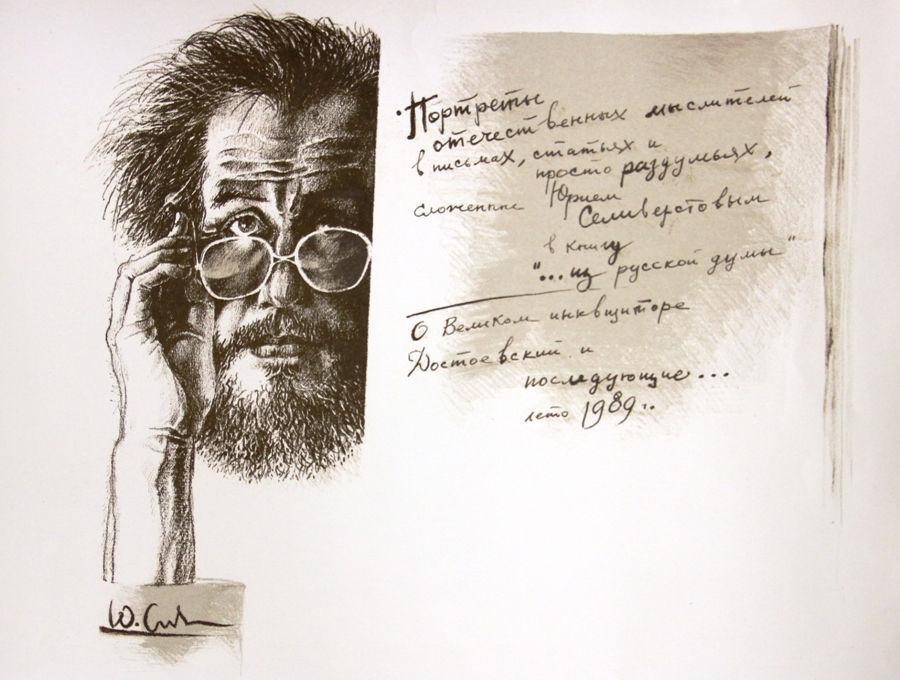 Портреты
отечественных мыслителей
в письмах, статьях и
просто раздумьях,
сложенные Юрием
Селиверстовым
в книгу
"...из русской думы"
О Великом инквизиторе
Достоевский и
последующие...
лето 1989 г.
Ю. Сел